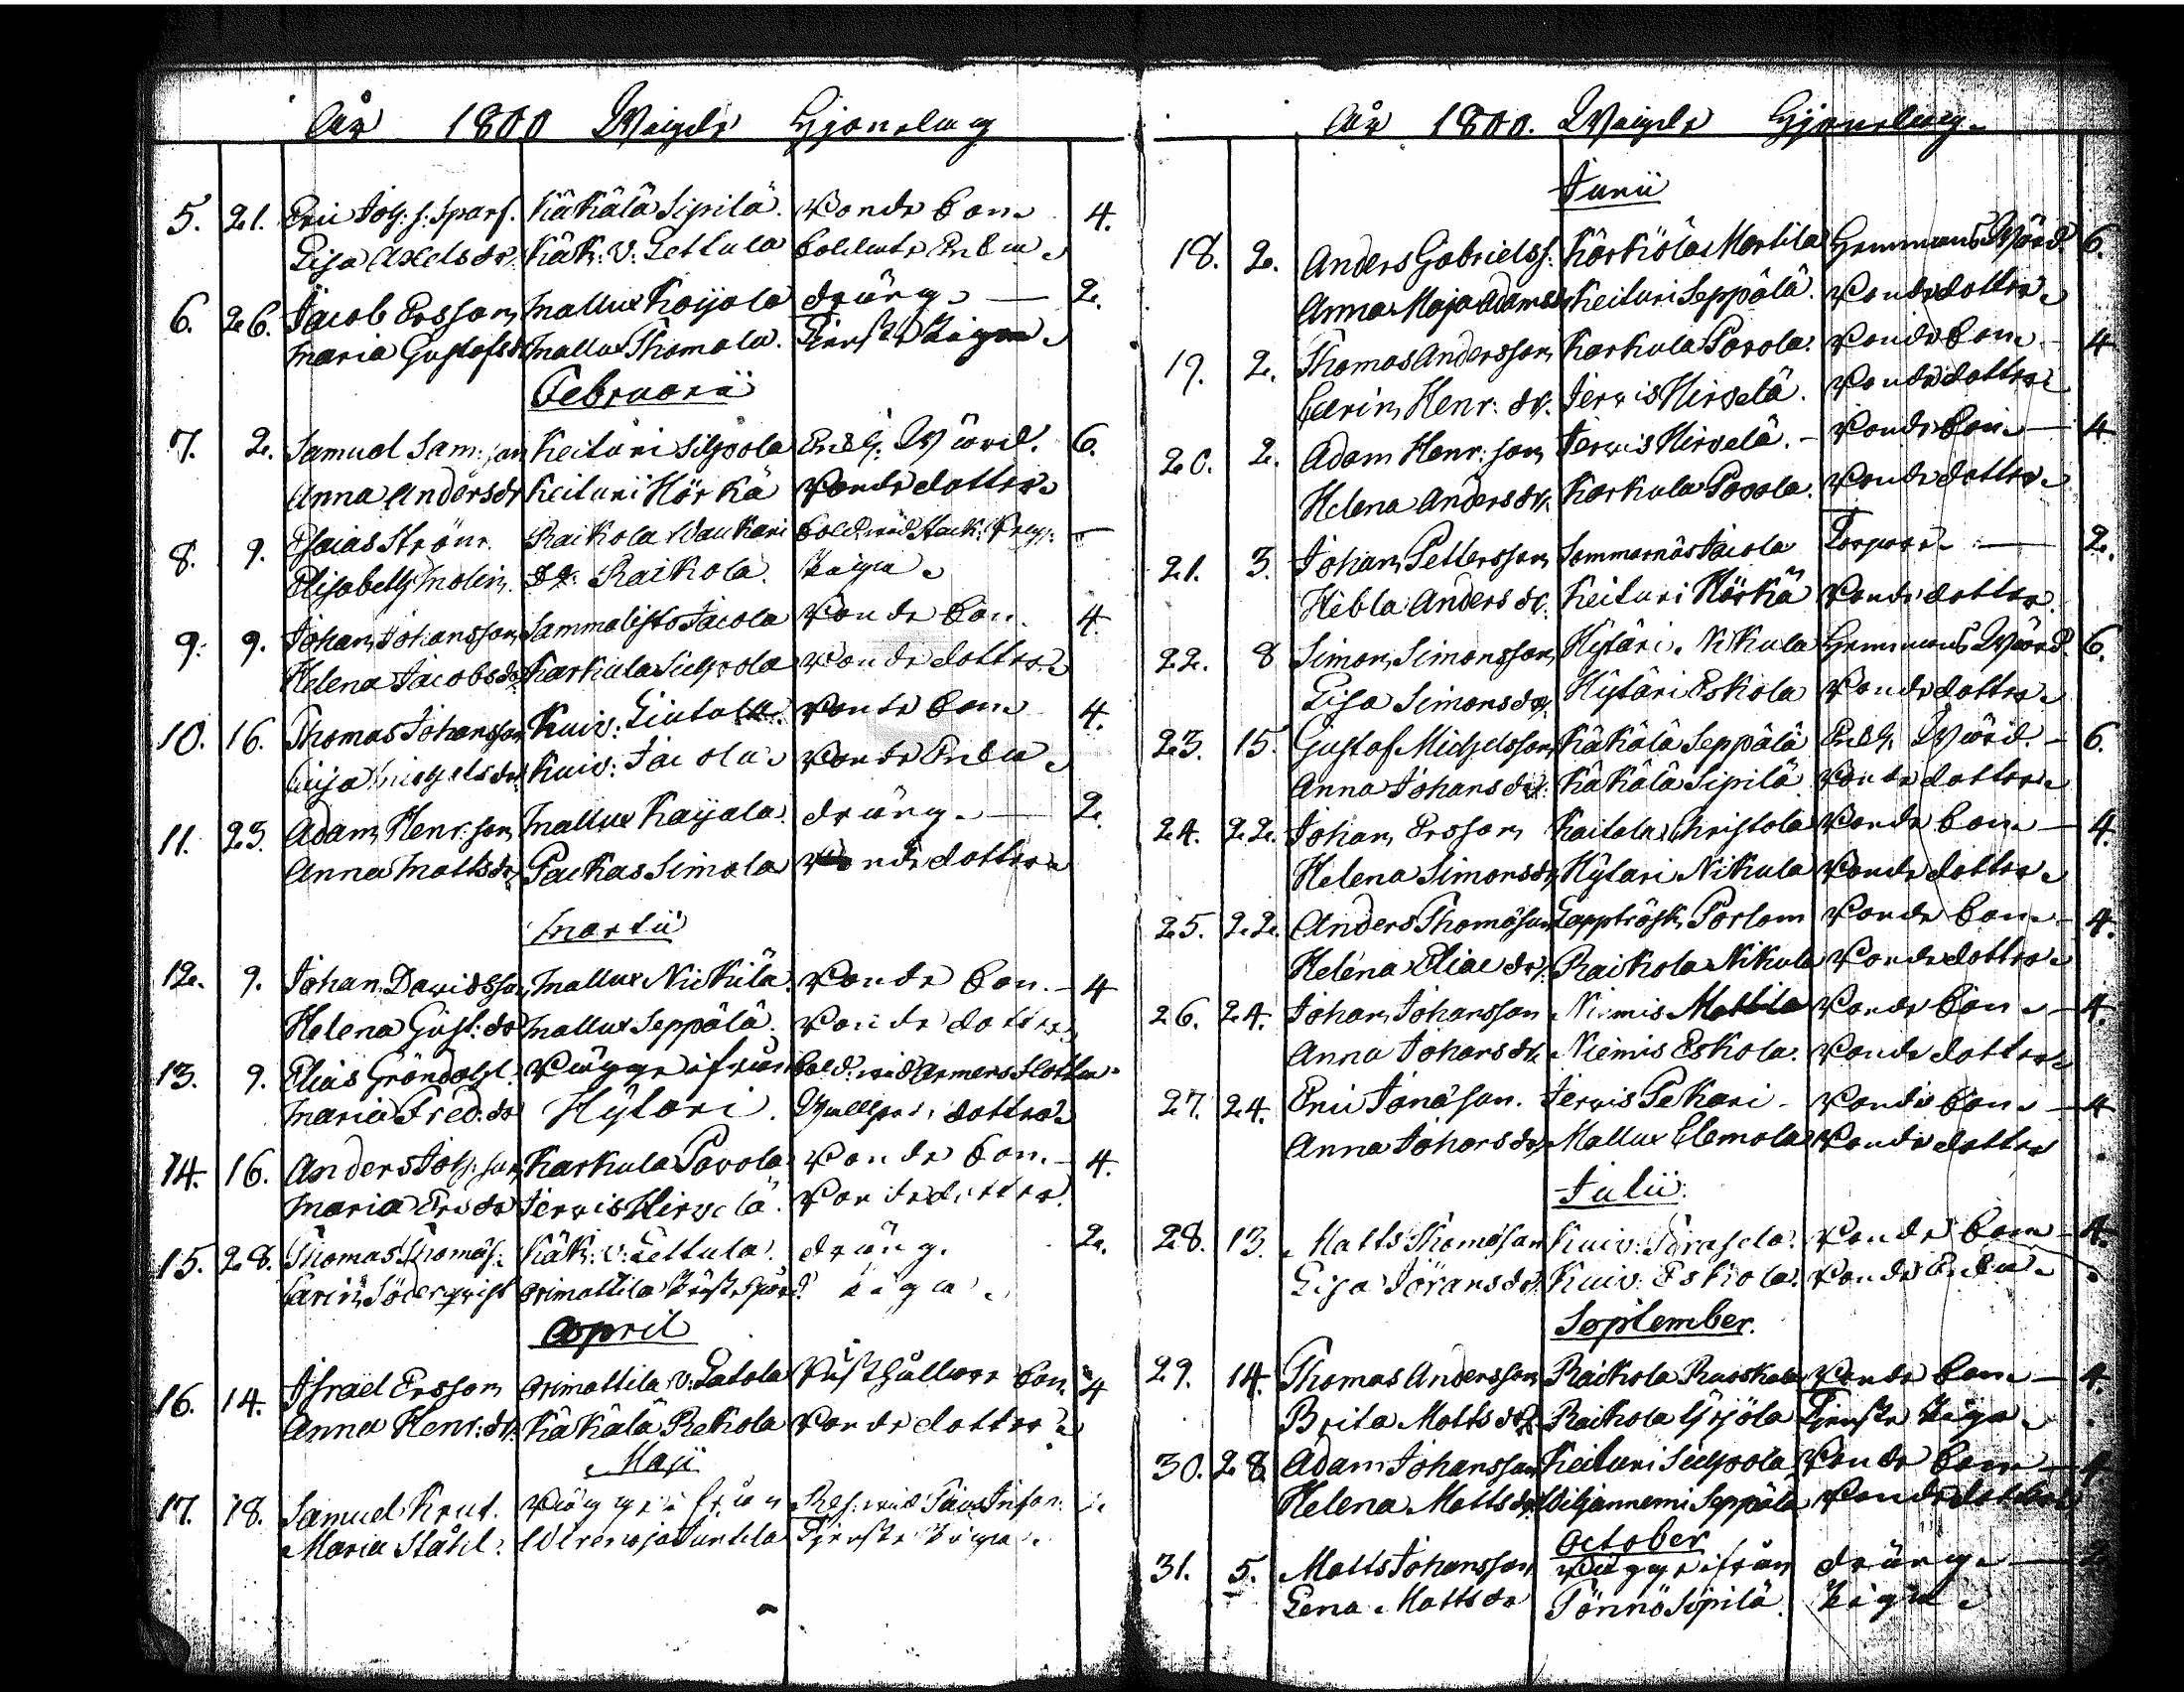 År 1800 Wigde Hjonelag
5. 21. Eric Joh: s: Sparf. Käkälä Sipilä. Bonde Son. 4.
Lisa Axelsdr: Käk: v: Lettula Soldate Enka.
6. 26. Jacob Ersson Mallux Koijola dräng. 2.
Maria Gustafsdr Mallux Thomola. Tienste Pigan.
Februarii
7. 2. Samuel Sam:son Keituri Silfvola Enkl: Wärd. 6.
Anna Andersdr Keituri Hörkä Bonde dotter.
8. 9. Esaias Ström. Raikola Waukari Sold: wid
Elisabeth Molin. Raikola. Piga.
9. 9. Johan Johansson Sammalisto Jacola Bonde Son. 4.
Helena Jacobsdr Karkula Silfvola Bonde dotter.
10. 16. Thomas Johansson Kuiv: Bonde Son 4.
Lisa Michelsdr Kuiv: Jacola Bonde Enka.
11. 23. Adam Henr:son Mallux Kaijala. dräng. 2.
Anna Mattsdr Packas Simola Bonde dotter.
Martii
12. 9. Johan Davidsson Mallux Nickilä. Bonde Son. 4
Helena Gust:dr Mallux Seppälä. Bonde dotter.
13. 9. Elias Gröndahl. Bägge ifrån Sold: wid
Maria Fred:dr Hytöri. dotter.
14. 16. Anders Joh:son Karkula Pavola Bonde Son. 4.
Maria Ersdr Jervis Hirvelä. Bonde dotter.
15. 28. Thomas Thomas: Käk: v: Lettula. dräng. 2.
Carin Söderqvist Orimattila piga.
April
16. 14. Israel Ersson Orimattila v: Latola Son. 4
Anna Henr:dr. Käkälä Rekola Bonde dotter.
Maji
17. 18. Samuel Knut. Bägge ifrån
Maria Ståhl. Wirenoja Juntila Tjenste Piga.
År 1800. Wigde Hjonelag.
Junii
18. 2. Anders Gabrielss. Kärkölä Martila Hemmans Wärd. 6.
Anna Maja Adamsdr Keituri Seppälä. Bonde dotter.
19. 2. Thomas Andersson Karkula Pavola. Bonde Son. 4
Carin Henr: dr. Jervis Hirvelä. Bonde dotter.
20. 2. Adam Henr:son Jervis Hirvelä. Bonde Son. 4
Helena Andersdr. Karkula Pavola. Bonde dotter.
21. 3. Johan Pettersson Sommarnäs Jacola Torpare. 2.
Hebla Andersdr. Keituri Hörkä Bonde dotter.
22. 8 Simon Simonsson Hytäri. Nikula Hemmans Wärd. 6.
Lisa Simonsdr. Hytäri Eskola Bonde dotter.
23. 15. Gustaf Michelsson Käkälä Seppälä Enkl. Wärd. 6.
Anna Johansdr: Käkälä Sipilä Bonde dotter.
24. 22. Johan Ersson Kaitala Christola Bonde Son. 4.
Helena Simonsdr Hytäri Nikula Bonde dotter.
25. 22. Anders Thomasson Lappträsk Porlom Bonde Son. 4.
Helena Eliaedr. Raikola Nikula Bonde dotter.
26. 24. Johan Johansson Niemis Mattila Bonde Son. 4.
Anna Johansdr. Niemis Eskola. Bonde dotter.
27. 24. Eric Jonasson. Jervis Pekari Bonde Son. 4
Anna Johansdr. Mallux Clemola Bonde dotter
Julii.
28. 13. Matts Thomasson Kuiv: Bonde Son. 4.
Lisa Göransdr. Kuiv: Eskola. Bonde Enka.
September.
29. 14. Thomas Andersson Raikola Ruoskala Bonde Son. 4.
Brita Mattsdr. Raikola Yrjölä Tjenste Piga.
30. 28 Adam Johansson Keituri Silfvola Bonde Son. 4.
Helena Mattsdr Viljanniemi Seppälä Bonde dotter
October
31. 5. Matts Johansson Bägge ifrån dräng. 2
Lena Mattsdr Tönnö Sipilä. Piga.